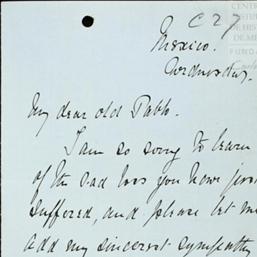 C27
CENTR
DE HIS
DE M
FUND
Mexico.
My dear old Pabb.
I am so sorry to learn
of the sad loss you have just
suffered, and please let me
add my sincerest sympathy